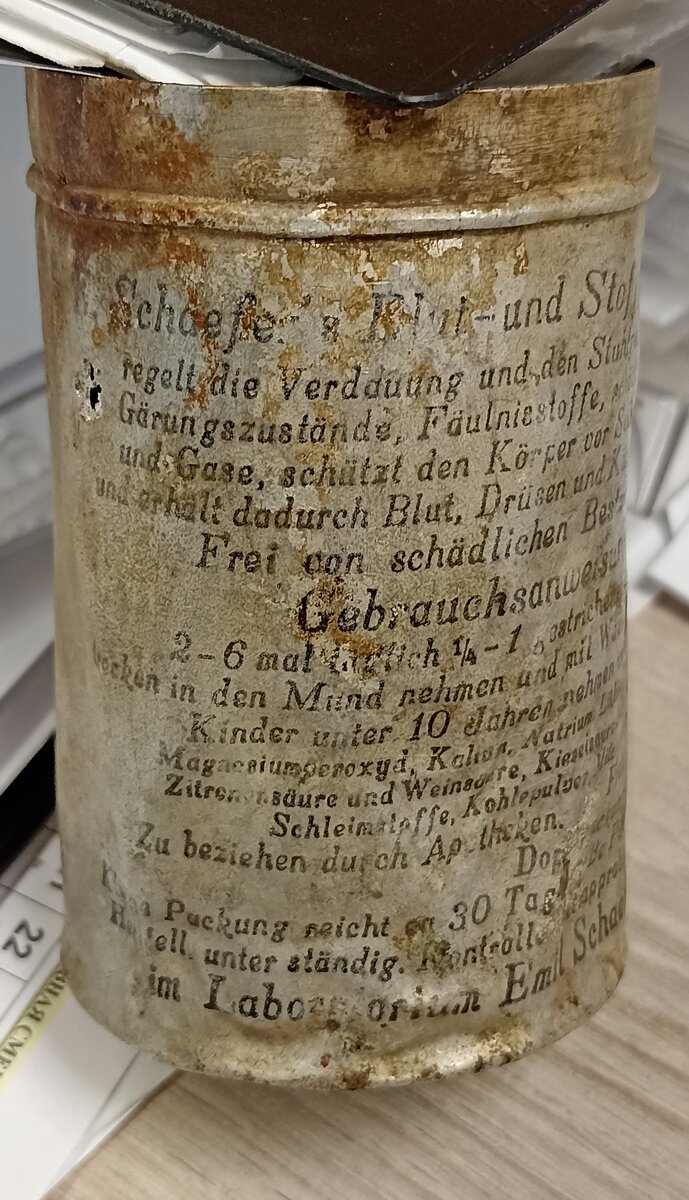 Schaefer's Blut- und Stof
regelt die Verdauung und den Stuhl
Gärungszustände, Fäulnisstoffe,
und Gase, schützt den Körper vor
und erhält dadurch Blut, Drüsen und
Frei von schädlichen Best
Gebrauchsanweisu
2-6 mal täglich ¼-1 gestrichen
trocken in den Mund nehmen und mit
Kinder unter 10 Jahren nehmen
Magnesiumperoxyd, Kalium, Natrium
Zitronensäure und Weinsäure, Kieselsäure
Schleimstoffe, Kohlepulver
Zu beziehen durch Apotheken.
Dop
Packung reicht ca 30 Tag
unter ständig. Kontrolle
im Laboratorium Emil Schae
22
НАЯ СМЕ